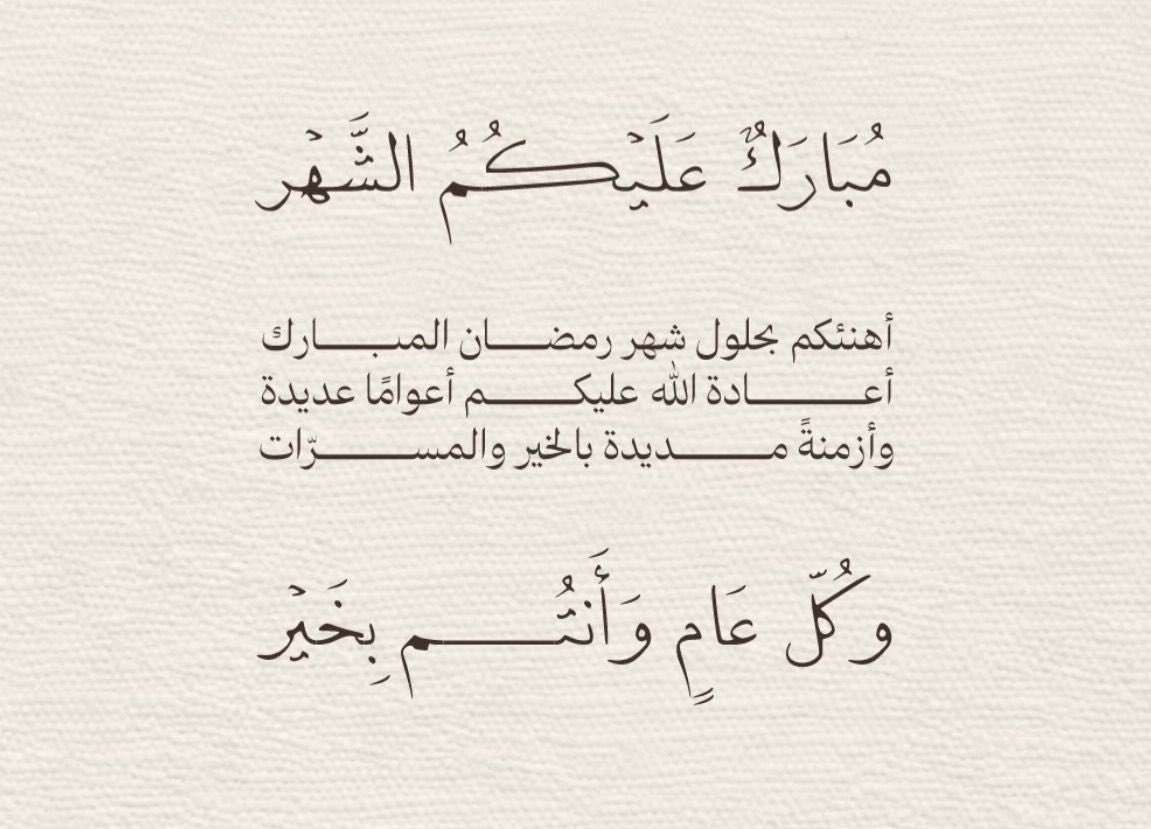 مُبَارَكٌ عَلَيْكُمُ الشَّهْر
أهنئكم بحلول شهر رمضـــان المبـــارك
أعـــــادة الله عليكـــــم أعوامًا عديدة
وأزمنةً مـــــديدة بالخير والمســـــرّات
وكُلّ عَامٍ وَأَنتُـــــم بِخَيْر